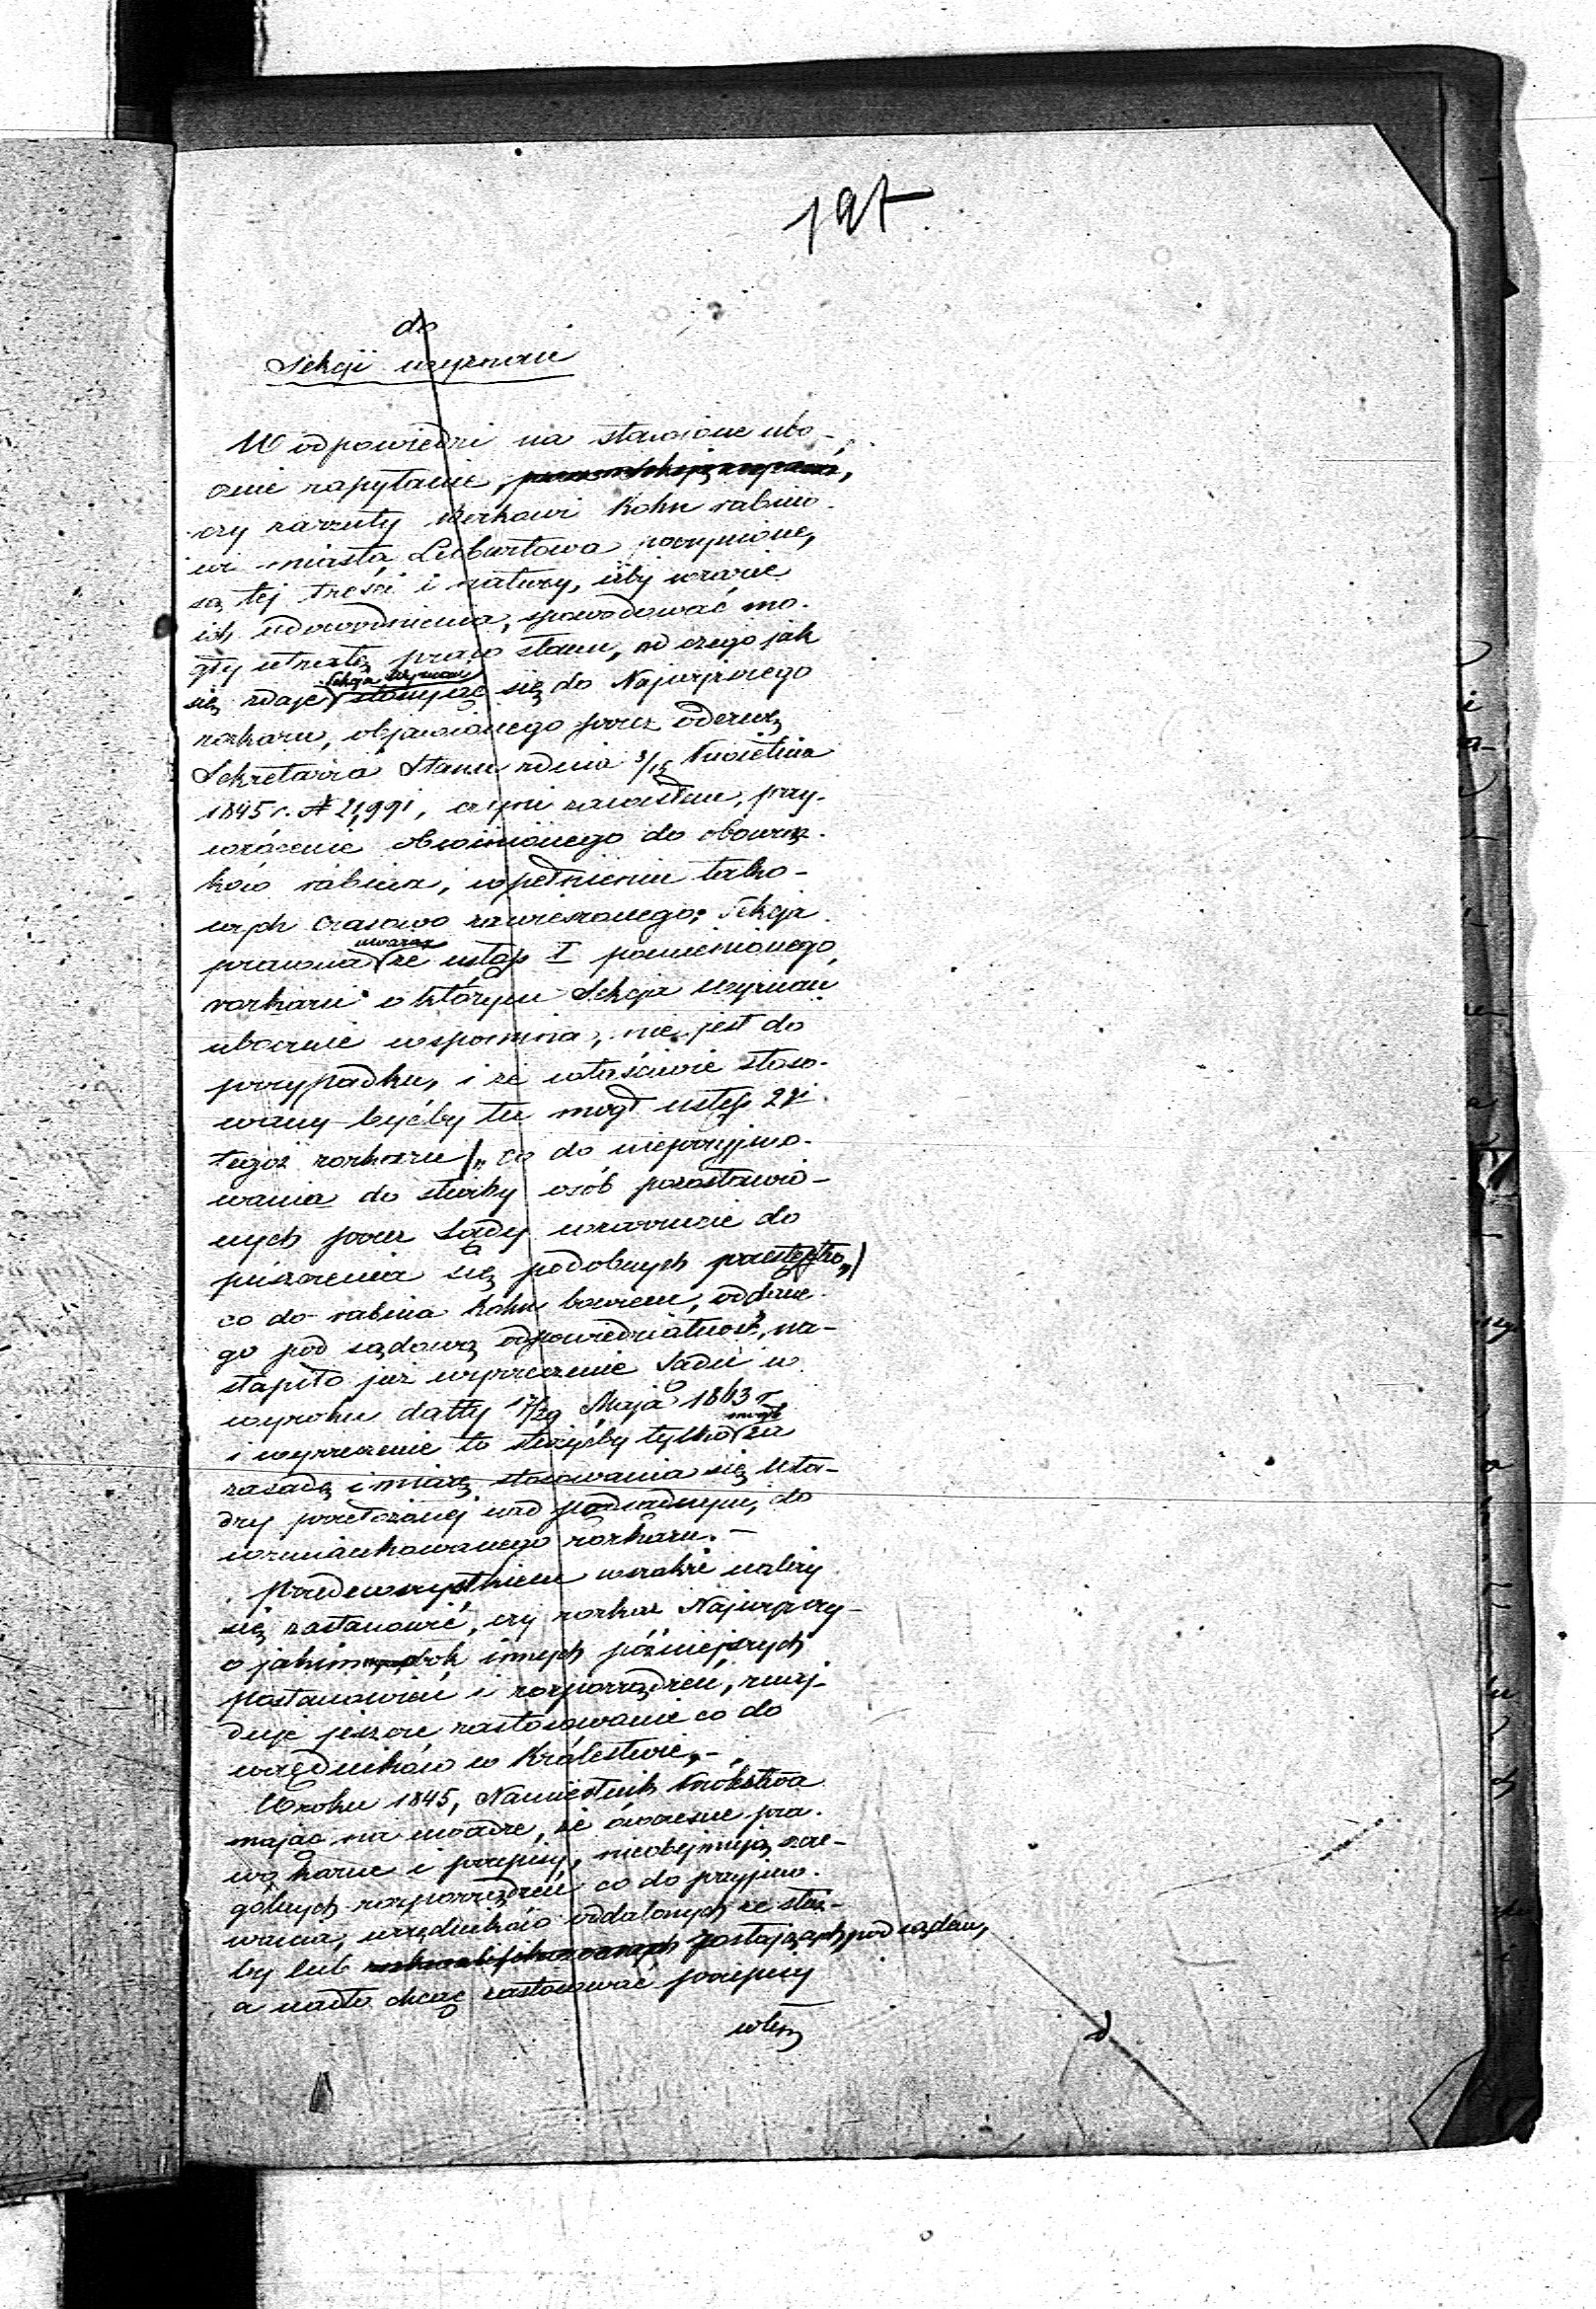 197
do
Sekcji wyznań
W odpowiedzi na stawione ubo-
cznie zapytanie,
czy zarzuty Berkowi Kohn rabino-
wi miasta Lubartowa poczynione,
są tej treści i natury, iżby w razie
ich udowodnienia, spowodować mo-
gły utratę praw stanu, od czego jak
się zdaje Sekcja Wyznań stosując się do Najwyższego
rozkazu, objawionego przez odezwę
Sekretarza Stanu z dnia 3/15 Kwietnia
1845 r. № 21,991, czyni zawisłem, przy-
wrócenie obwinionego do obowiąz-
ków rabina, w pełnieniu tako-
wych czasowo zawieszonego; Sekcja
prawna uważa że ustęp I pomienionego
rozkazu o którym Sekcja Wyznań
ubocznie wspomina, nie jest do
przypadku, i że właściwie stoso-
wany byćby tu mógł ustęp 2gi
tegoż rozkazu „co do nieprzyjmo-
wania do służby osób pozostawio-
nych przez Sądy w zarzucie do
puszczenia się podobnych przestępstw"
co do rabina Kohn bowiem, oddane-
go pod sądową odpowiedzialność, na-
stąpiło już wyrzeczenie Sądu w
wyroku datty 17/29 Maja 1863 r.
i wyrzeczenie to służyćby tylko mogło za
zasadę i miarę stosowania się Wła-
dzy przełożonej nad podwładnym, do
wzmiankowanego rozkazu.-
Przedewszystkiem wszakże należy
się zastanowić, czy rozkaz Najwyższy
o jakim obok innych późniejszych
postanowień i rozporządzeń, znaj-
duje jeszcze zastosowanie co do
urzędników w Królestwie.-
W roku 1845, Namiestnik Królestwa
mając na uwadze, że ówczesne pra-
wa karne i przepisy, nieobejmują szcze-
gólnych rozporządzeń co do przyjmo-
wania, urzędników oddalonych ze służ-
by lub zostających pod sądem,
a nadto chcąc zastosować przepisy
w tej